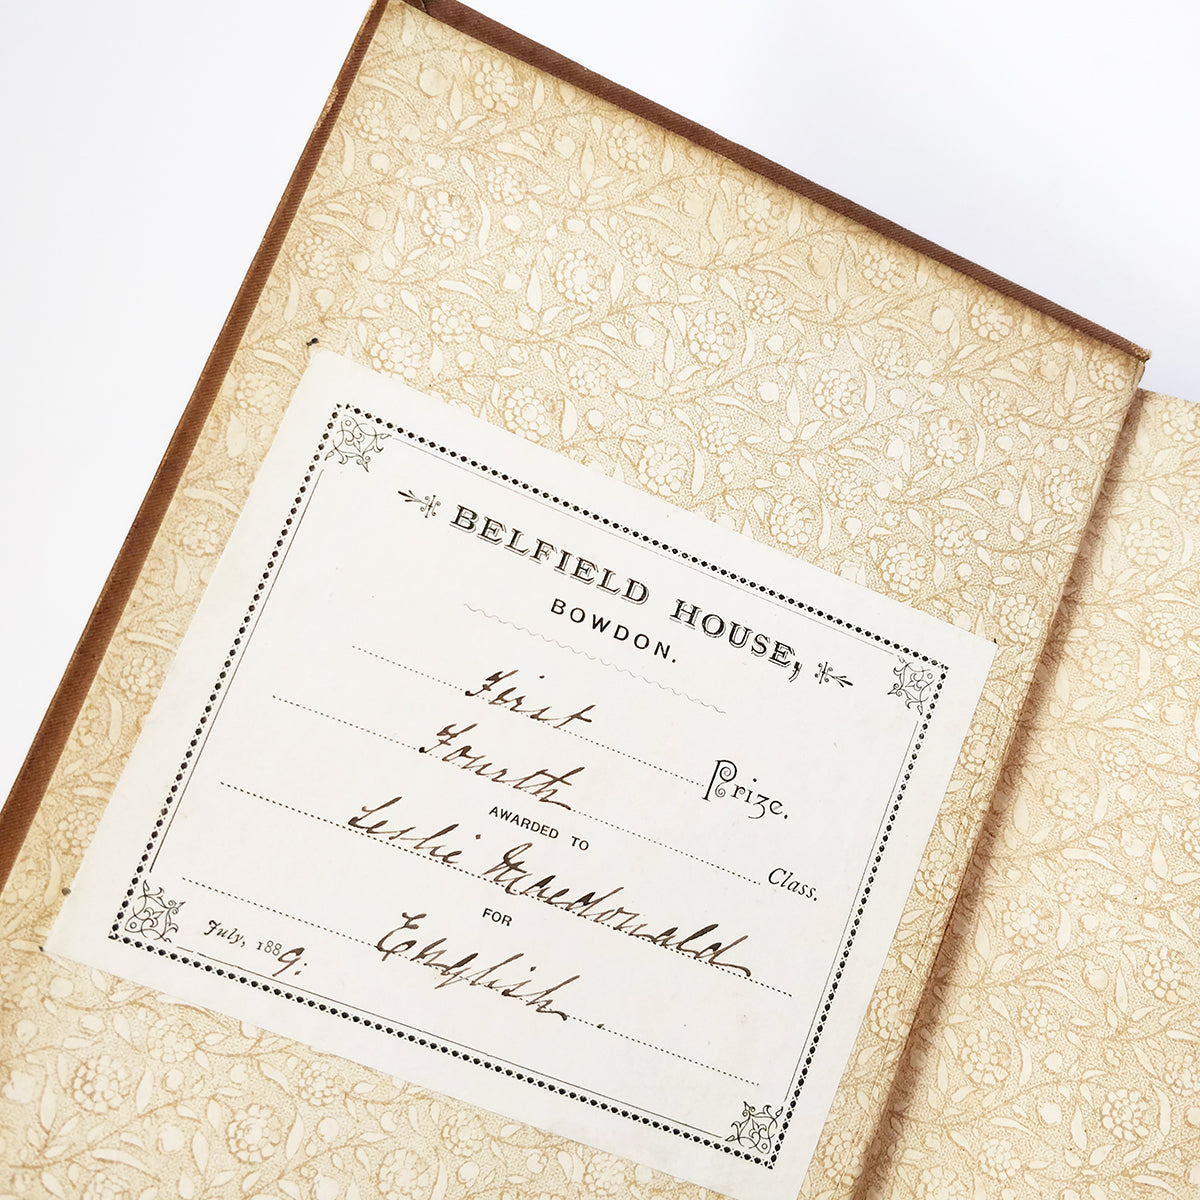 BELFIELD HOUSE,
BOWDON.
First Prize.
Fourth Class.
AWARDED TO
Leslie Macdonald
FOR
English.
July, 1889.